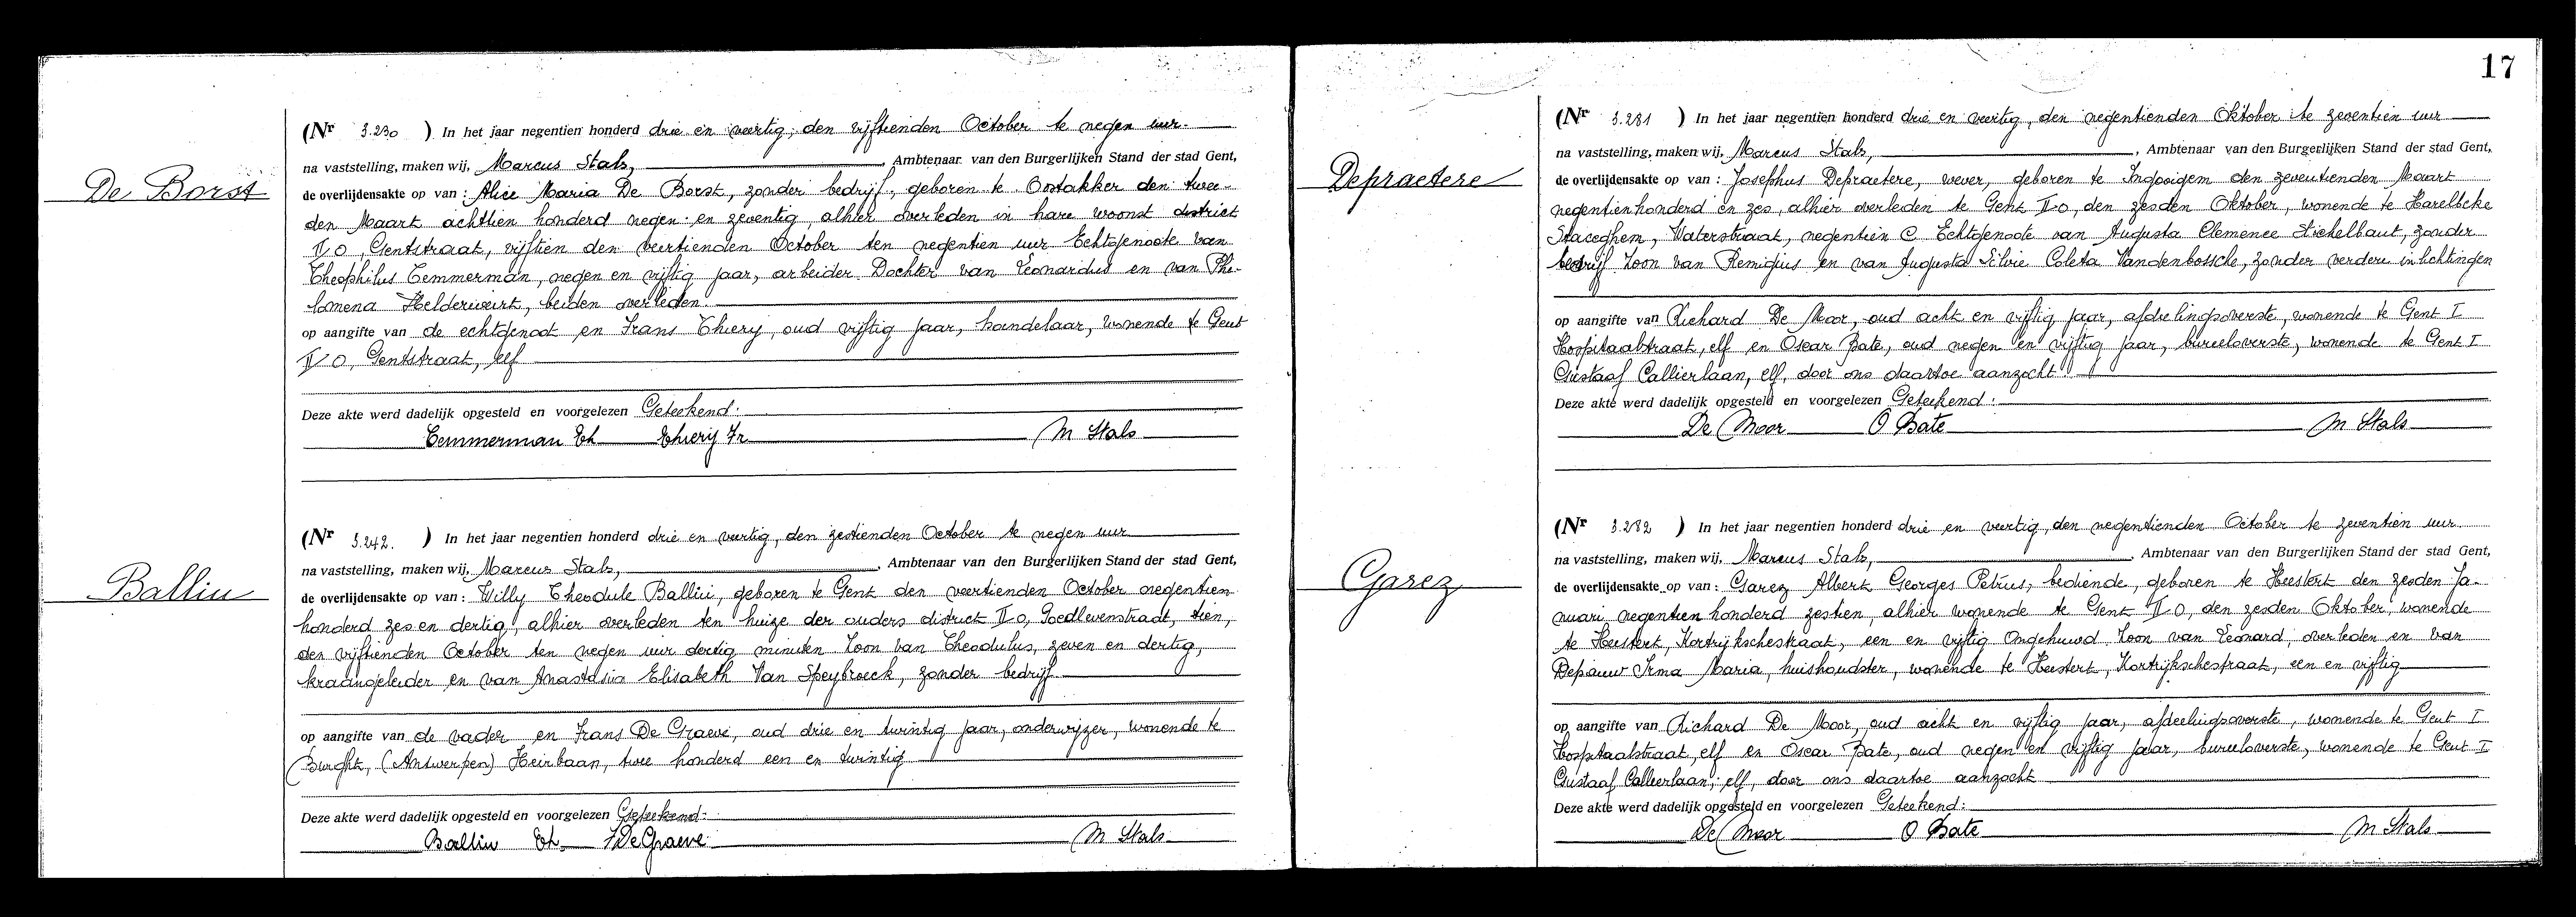 De Borst
(Nr 3.230 ) In het jaar negentien honderd drie en veertig, den vijftienden October te negen uur.
na vaststelling, maken wij, Marcus Stals, , Ambtenaar van den Burgerlijken Stand der stad Gent,
de overlijdensakte op van : Alice Maria De Borst, zonder bedrijf, geboren te Oostakker den twee-
den Maart achttien honderd negen en zeventig, alhier overleden in hare woonst district
II O, Gentstraat, vijftien den veertienden October ten negentien uur Echtgenoote van
Theophilus Temmerman, negen en vijftig jaar, arbeider Dochter van Leonardus en van Phi-
lomena Helderweirt, beiden overleden.
op aangifte van de echtgenoot en Frans Thiery, oud vijftig jaar, handelaar, wonende te Gent
II O, Gentstraat, elf
Deze akte werd dadelijk opgesteld en voorgelezen Geteekend:
Temmerman Th Thiery Fr M Stals
Balliu
(Nr 3.242. ) In het jaar negentien honderd drie en veertig, den zestienden October te negen uur
na vaststelling, maken wij, Marcus Stals, , Ambtenaar van den Burgerlijken Stand der stad Gent,
de overlijdensakte op van : Willy Theodule Balliu, geboren te Gent den veertienden October negentien
honderd zes en dertig, alhier overleden ten huize der ouders district II O, Goedlevenstraat, tien,
den vijftienden October ten negen uur dertig minuten Zoon van Theodulus, zeven en dertig,
kraangeleider en van Anastasia Elisabeth Van Speybroeck, zonder bedrijf
op aangifte van de vader en Frans De Graeve, oud drie en twintig jaar, onderwijzer, wonende te
Burght, (Antwerpen) Heirbaan, twee honderd een en twintig
Deze akte werd dadelijk opgesteld en voorgelezen Geteekend:
Balliu Th F De Graeve M Stals
17
Depraetere
(Nr 3.281 ) In het jaar negentien honderd drie en veertig, den negentienden Oktober te zeventien uur
na vaststelling, maken wij, Marcus Stals, , Ambtenaar van den Burgerlijken Stand der stad Gent,
de overlijdensakte op van : Josephus Depraetere, wever, geboren te Ingooigem den zeventienden Maart
negentienhonderd en zes, alhier overleden te Gent II O, den zesden Oktober, wonende te Harelbeke
Staceghem, Waterstraat, negentien C Echtgenoote van Augusta Clemence Stichelbaut, zonder
bedrijf Zoon van Remigius en van Augusta Silvie Coleta Vandenbossche, zonder verdere inlichtingen
op aangifte van Richard De Moor, oud acht en vijftig jaar, afdeelingsoverste, wonende te Gent I
Hospitaalstraat, elf en Oscar Bate, oud negen en vijftig jaar, bureeloverste, wonende te Gent I
Gustaaf Callierlaan, elf, door ons daartoe aanzocht
Deze akte werd dadelijk opgesteld en voorgelezen Geteekend:
De Moor O Bate M Stals
Garez
(Nr 3.282 ) In het jaar negentien honderd drie en veertig, den negentienden October te zeventien uur
na vaststelling, maken wij, Marcus Stals, , Ambtenaar van den Burgerlijken Stand der stad Gent,
de overlijdensakte op van : Garez Albert Georges Petrus, bediende, geboren te Heestert den zesden Ja-
nuari negentien honderd zestien, alhier wonende te Gent II O, den zesden Oktober, wonende
te Heestert, Kortrijkschestraat, een en vijftig Ongehuwd Zoon van Leonard, overleden en van
Depauw Irma Maria, huishoudster, wonende te Heestert, Kortrijkschestraat, een en vijftig
op aangifte van Richard De Moor, oud acht en vijftig jaar, afdeelingsoverste, wonende te Gent I
Hospitaalstraat, elf en Oscar Bate, oud negen en vijftig jaar, bureeloverste, wonende te Gent I
Gustaaf Callierlaan, elf, door ons daartoe aanzocht
Deze akte werd dadelijk opgesteld en voorgelezen Geteekend:
De Moor O Bate M Stals